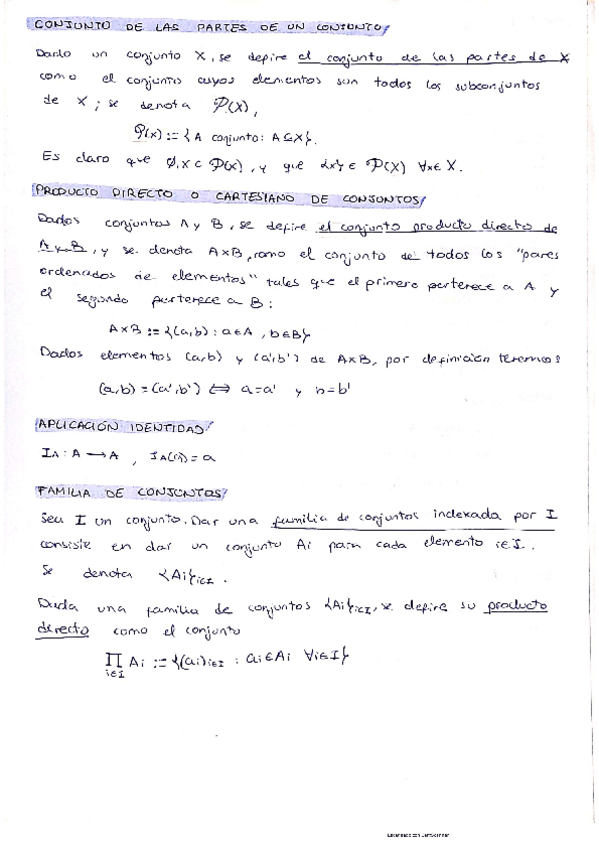 CONJUNTO DE LAS PARTES DE UN CONJUNTO/
Dado un conjunto X, se define el conjunto de las partes de X
como el conjunto cuyos elementos son todos los subconjuntos
de X ; se denota P(X),
P(X) := { A conjunto: A ⊆ X }.
Es claro que ∅, X ⊂ P(X), y que {x} ∈ P(X) ∀x ∈ X.
PRODUCTO DIRECTO O CARTESIANO DE CONJUNTOS/
Dados conjuntos A y B, se define el conjunto producto directo de
A y B, y se denota A×B, como el conjunto de todos los "pares
ordenados de elementos" tales que el primero pertenece a A y
el segundo pertenece a B:
A×B := {(a,b) : a∈A , b∈B}
Dados elementos (a,b) y (a',b') de A×B, por definición tenemos:
(a,b) = (a',b') ⟺ a=a' y b=b'
APLICACIÓN IDENTIDAD/
I_A : A → A , I_A(a) = a
FAMILIA DE CONJUNTOS/
Sea I un conjunto. Dar una familia de conjuntos indexada por I
consiste en dar un conjunto Ai para cada elemento i∈I.
Se denota {Ai}i∈I.
Dada una familia de conjuntos {Ai}i∈I, se define su producto
directo como el conjunto
∏ Ai := {(ai)i∈I : ai∈Ai ∀i∈I}
i∈I
Escaneado con CamScanner